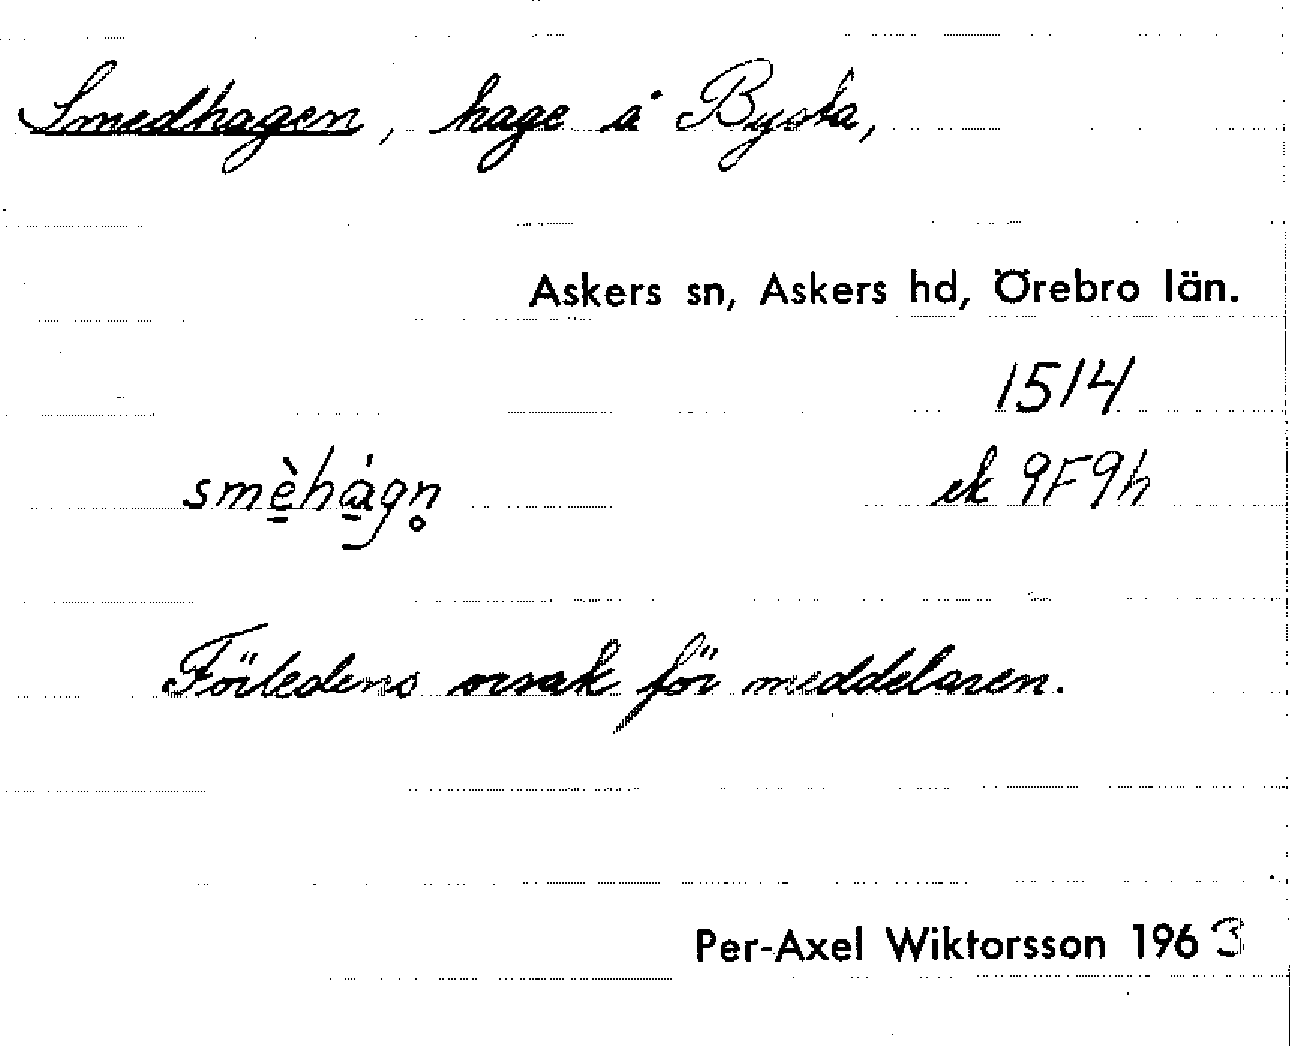 Smedhagen, hage å Bysta,
Askers sn, Askers hd, Örebro län.
1514
smè̱há̱gn̥ ek 9F9h
Förledens orsak för meddelaren.
Per-Axel Wiktorsson 1963